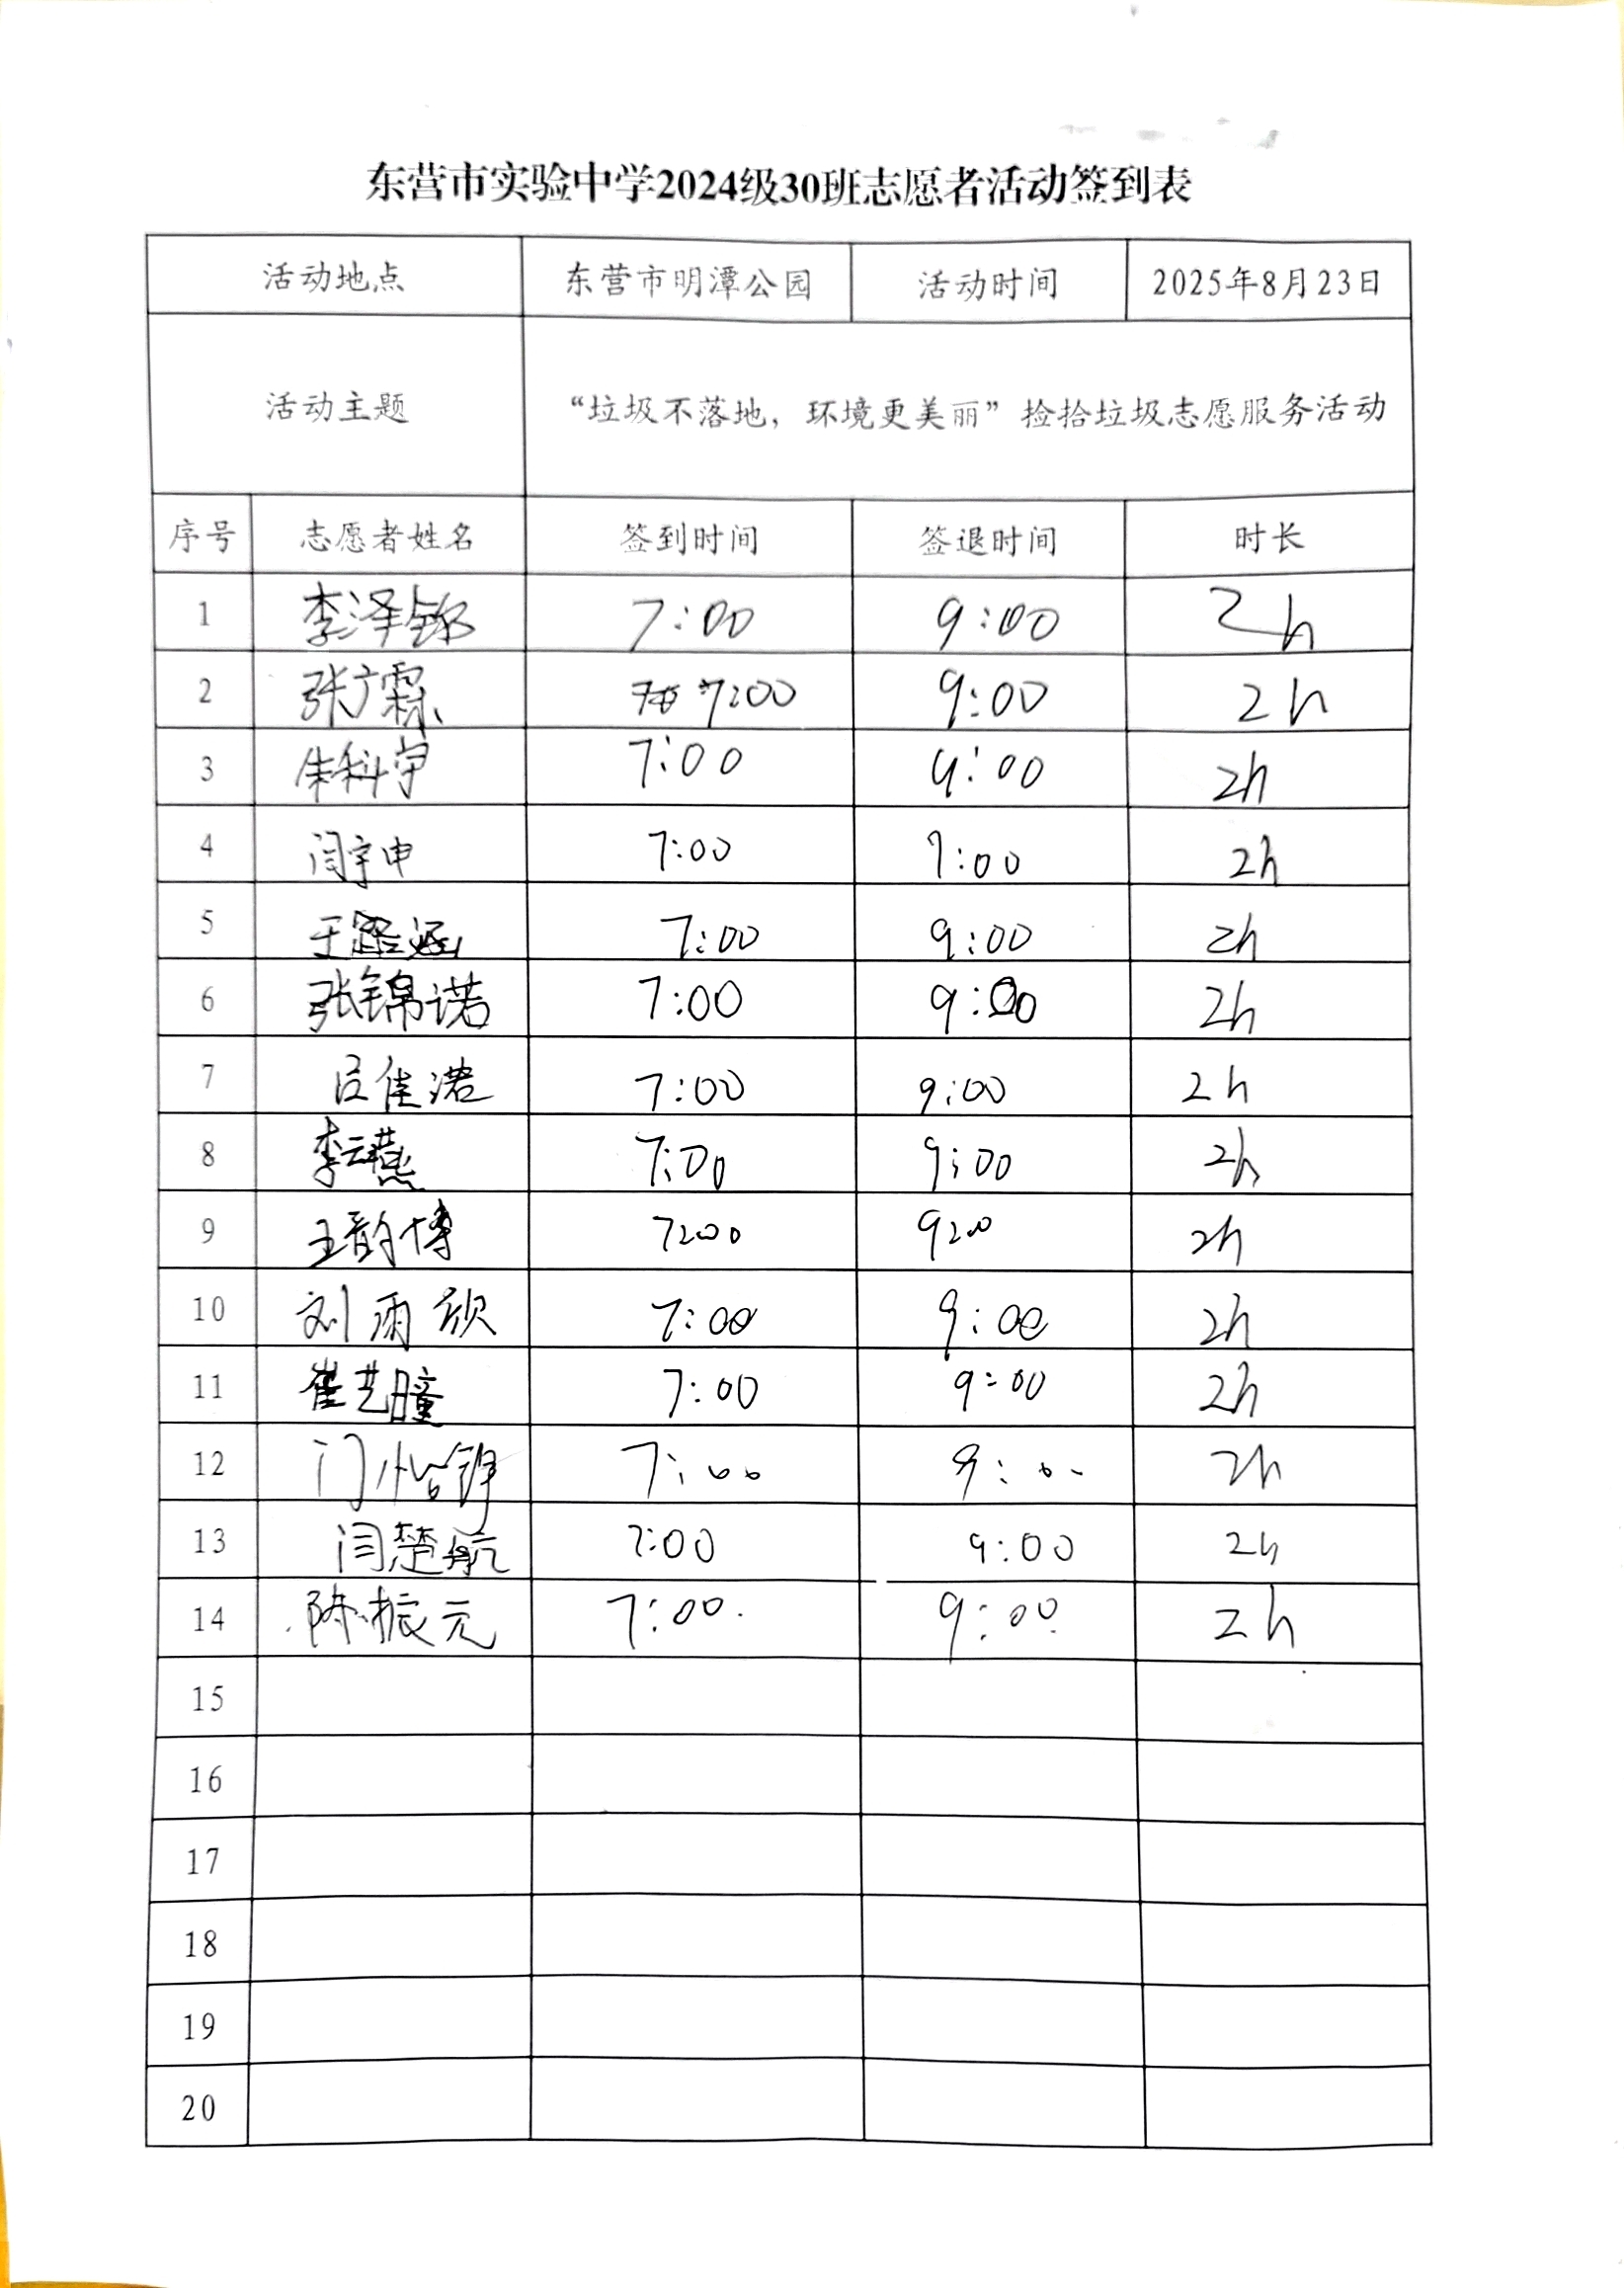 东营市实验中学2024级30班志愿者活动签到表
活动地点 东营市明潭公园 活动时间 2025年8月23日
活动主题 “垃圾不落地，环境更美丽”捡拾垃圾志愿服务活动
序号 志愿者姓名 签到时间 签退时间 时长
1 李泽锦 7:00 9:00 2h
2 张广霖 7:00 9:00 2h
3 朱科宇 7:00 9:00 2h
4 闫宇申 7:00 9:00 2h
5 王路涵 7:00 9:00 2h
6 张锦诺 7:00 9:00 2h
7 吕佳珺 7:00 9:00 2h
8 李云燕 7:00 9:00 2h
9 王韵博 7:00 9:00 2h
10 刘雨欣 7:00 9:00 2h
11 崔艺瞳 7:00 9:00 2h
12 门怡锦 7:00 9:00 2h
13 闫楚航 7:00 9:00 2h
14 陈振元 7:00 9:00 2h
15
16
17
18
19
20